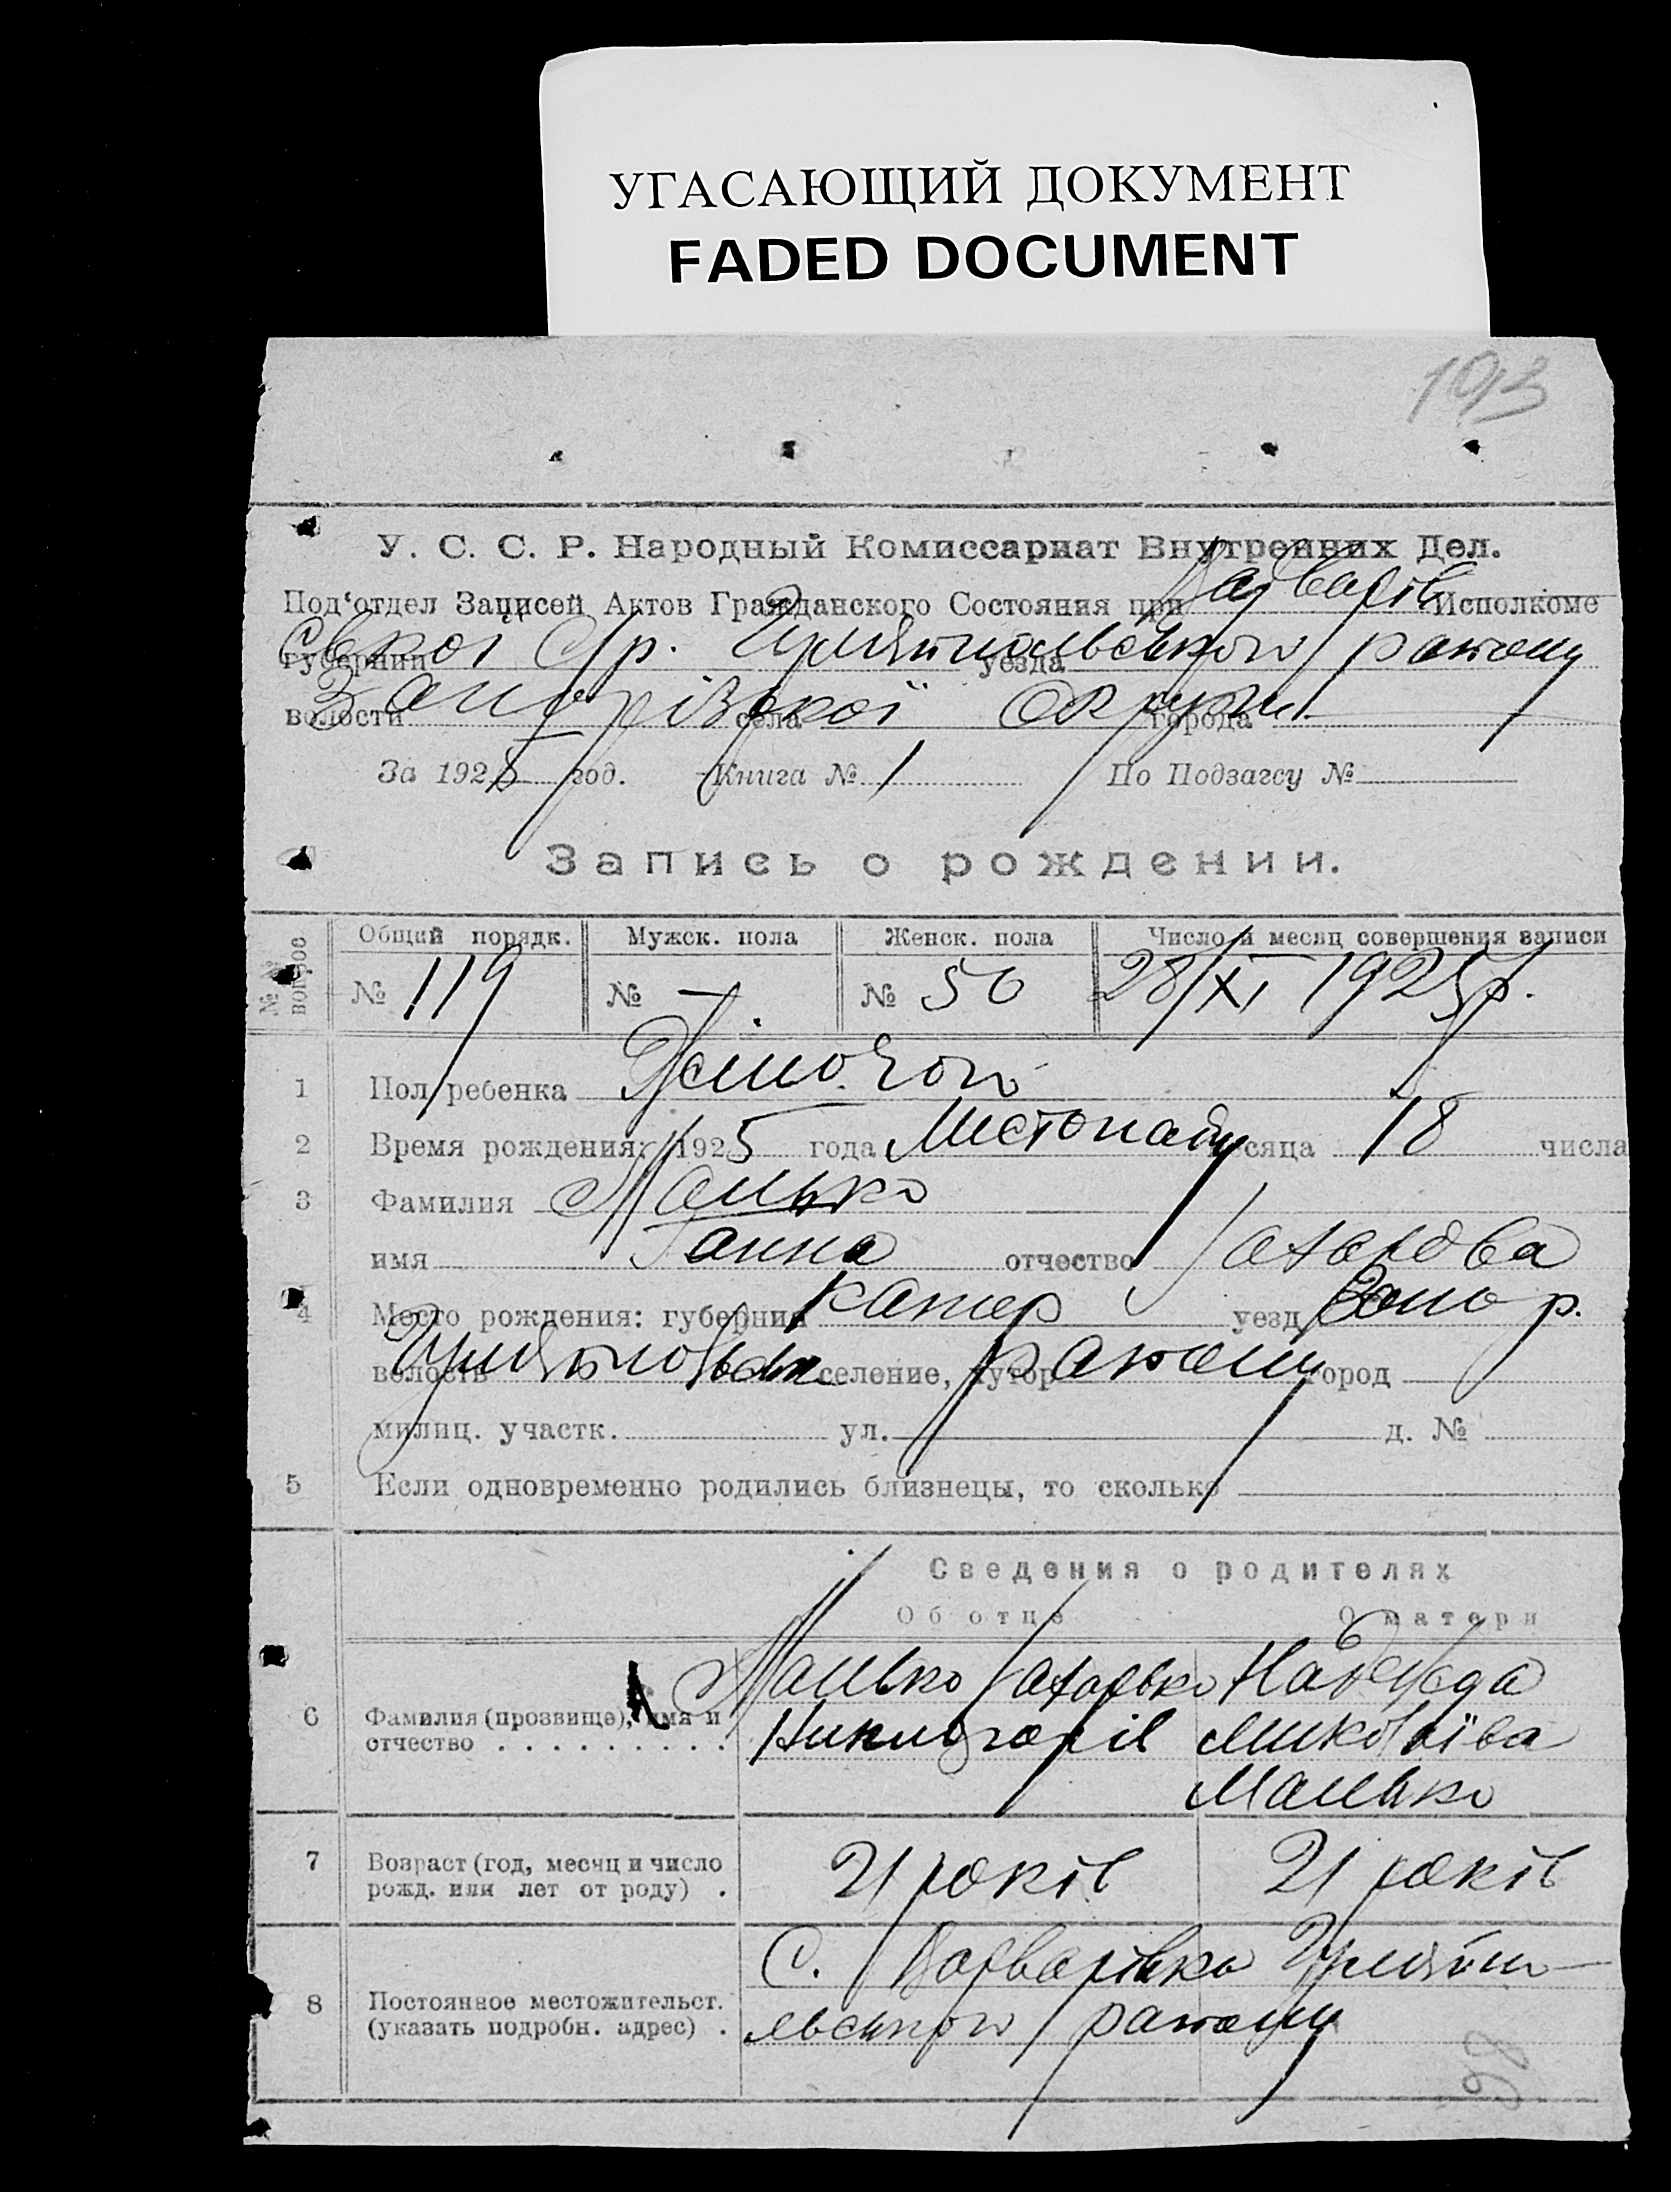 УГАСАЮЩИЙ ДОКУМЕНТ
FADED DOCUMENT
193
У. С. С. Р. Народный Комиссариат Внутренних Дел.
Под'отдел Записей Актов Гражданского Состояния при Варварів Исполкоме
ської с/р. Гуляйпольського району
губернии уезда
Запорізької Округи
волости села города
За 1925 год. Книга № 1 По Подзагсу №
Запись о рождении.
№№ вопросов Общий порядк. Мужск. пола Женск. пола Число и месяц совершения записи
№ 119 № — № 56 28/XI 1925 р.
1 Пол ребенка Жіночого
2 Время рождения: 1925 года Листопаду месяца 18 числа
3 Фамилия Манько
имя Ганна отчество Захарова
4 Место рождения: губерния Катер уезд Запор.
волость Гуляйпольськ селение, хутор району город
милиц. участк. ул. д. №
5 Если одновременно родились близнецы, то сколько
Сведения о родителях
Об отце О матери
6 Фамилия (прозвище), имя и отчество Манько Захарько Надежда
Никифорів Миколаїва
Манько
7 Возраст (год, месяц и число рожд. или лет от роду) 21 років 21 років
8 Постоянное местожительст. (указать подробн. адрес) С. Варварівка Гуляйпо-
льського району
98